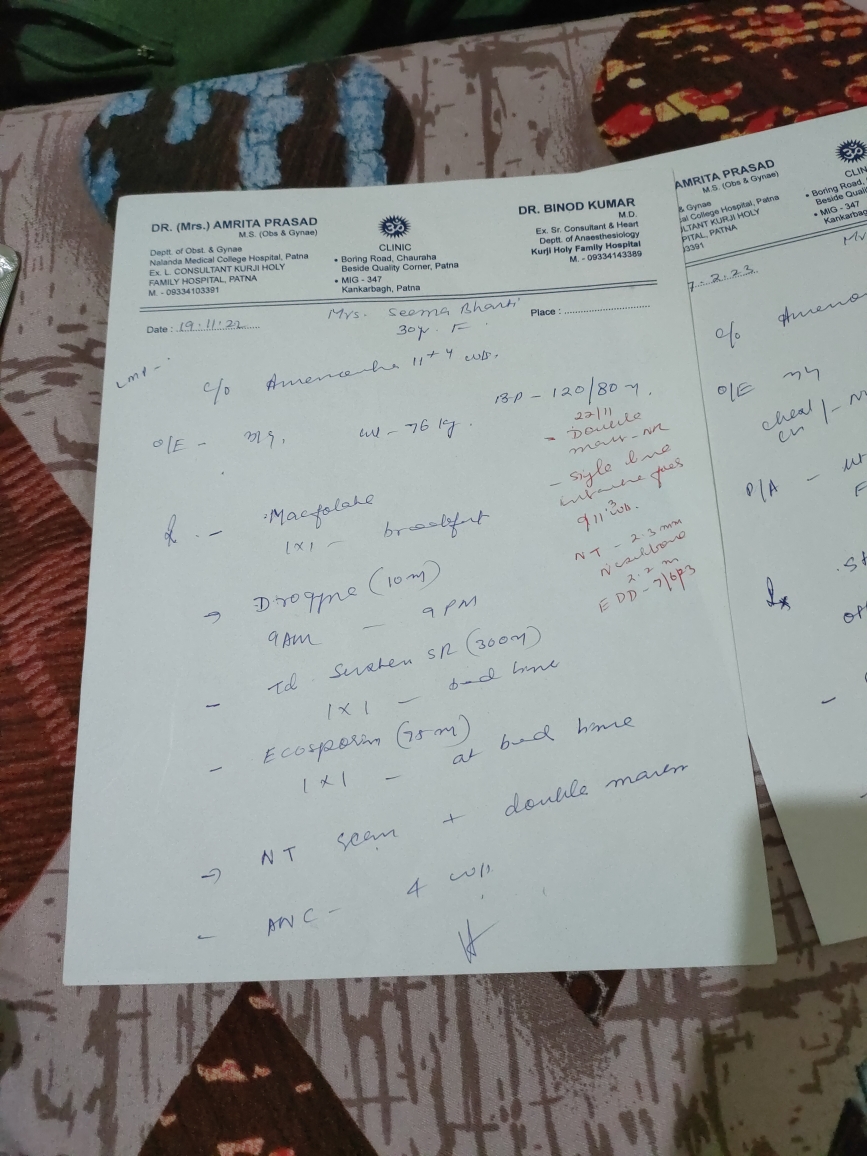 DR. (Mrs.) AMRITA PRASAD
M.S. (Obs & Gynae)
Deptt. of Obst. & Gynae
Nalanda Medical College Hospital, Patna
Ex. L. CONSULTANT KURJI HOLY
FAMILY HOSPITAL, PATNA
M. - 09334103391
ॐ
CLINIC
• Boring Road, Chauraha
Beside Quality Corner, Patna
• MIG - 347
Kankarbagh, Patna
DR. BINOD KUMAR
M.D.
Ex. Sr. Consultant & Heart
Deptt. of Anaesthesiology
Kurji Holy Family Hospital
M. - 09334143389
Date : 19.11.22
Mrs. Seema Bharti
30y. F
Place :
LMP -
c/o Amenorrhea 11+4 wks.
O/E - wt - 76 kg. BP - 120/80
22/11
- Double
marker - NR
- Single live
intrauterine
11.3 wks.
NT - 2.3 mm
Nasal bone
2.2 m
EDD - 7/6/23
- Macfolate
1x1 - breakfast
→ Drogyne (10 m)
9 AM - 9 PM
- Td. Susten SR (300 m)
1 x 1 - bed time
- Ecosporin (75 m)
1 x 1 - at bed time
→ NT scan + double marker
- ANC - 4 wks
AMRITA PRASAD
M.S. (Obs & Gynae)
& Gynae
al College Hospital, Patna
ULTANT KURJI HOLY
PITAL, PATNA
3391
ॐ
CLIN
• Boring Road,
Beside Quali
• MIG - 347
Kankarbag
7.2.23
c/o Ameno
O/E
chest
P/A -
Rx